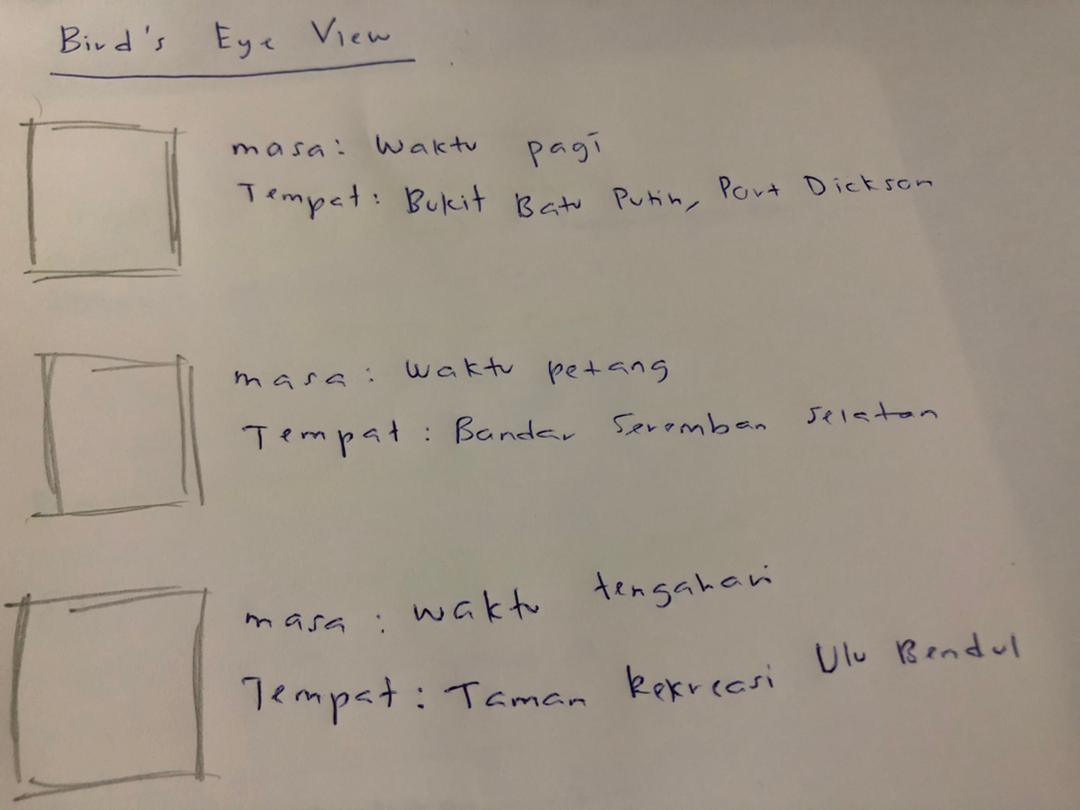 Bird's Eye View
masa: Waktu pagi
Tempat: Bukit Batu Putih, Port Dickson
masa: Waktu petang
Tempat: Bandar Seremban Selatan
masa: Waktu tengahari
Tempat: Taman Rekreasi Ulu Bendul